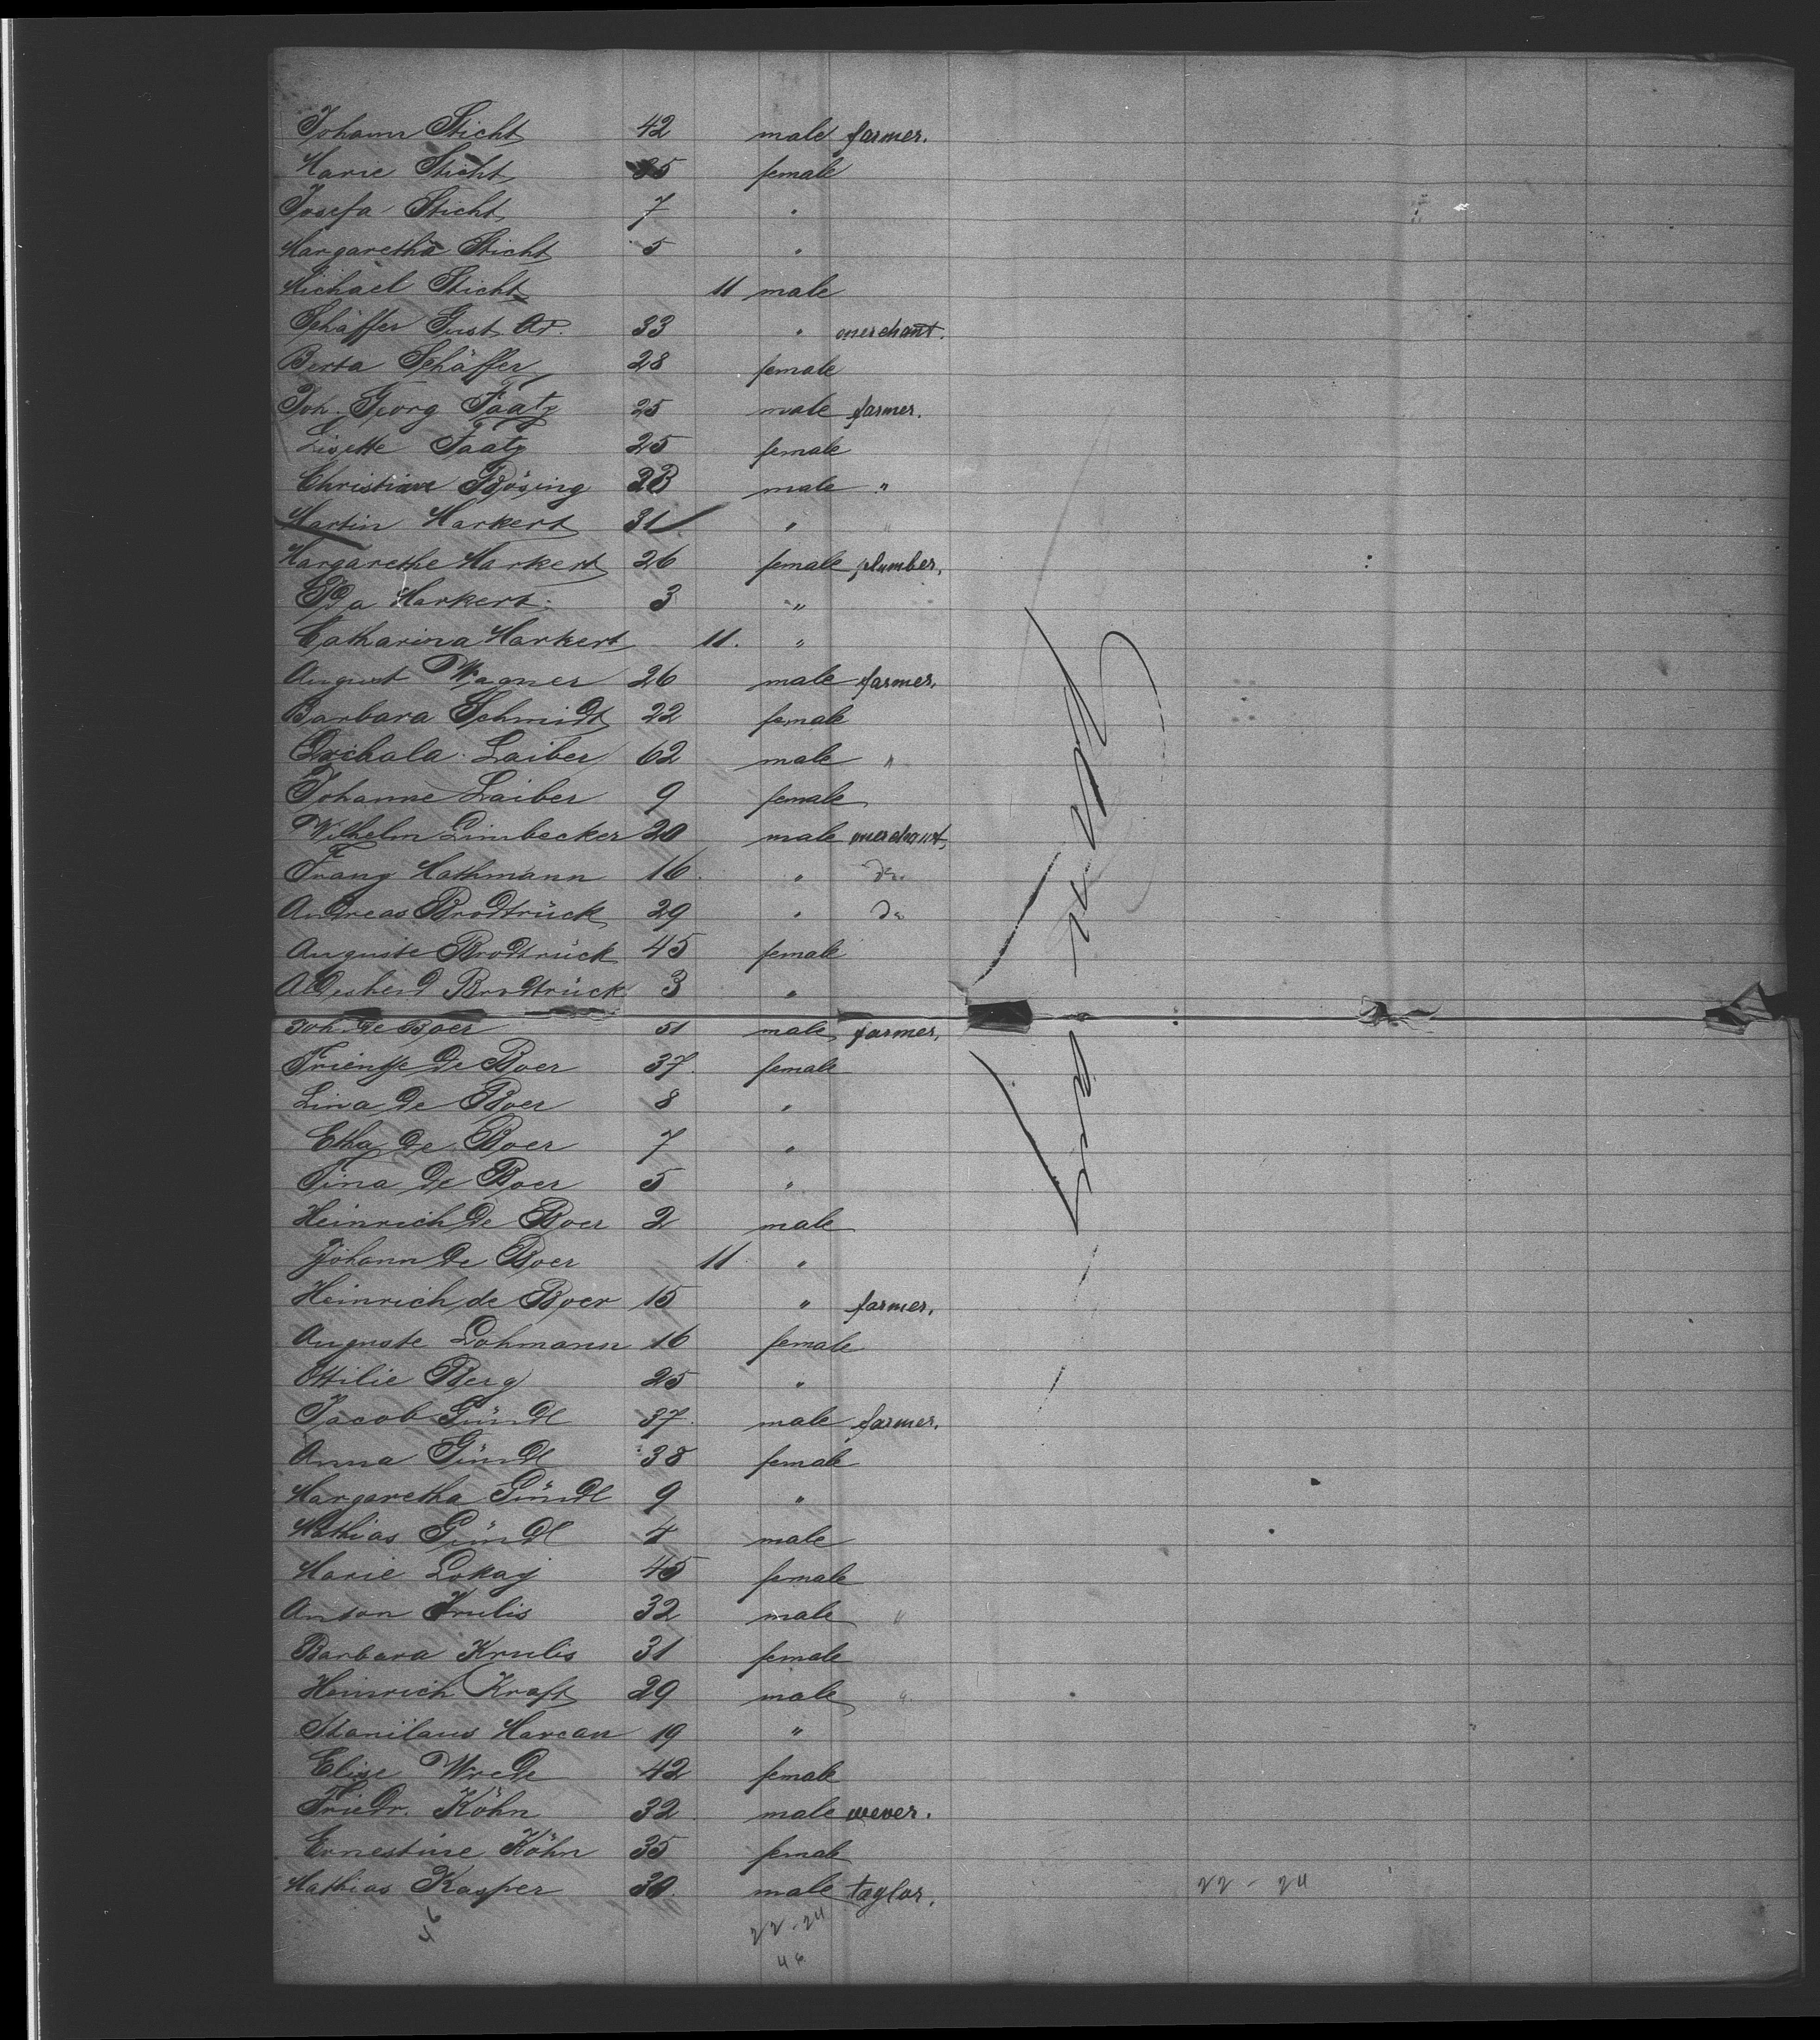 Johann Sticht 42 male farmer.
Marie Sticht 35 female
Josefa Sticht 7 "
Margaretha Sticht 5 "
Michael Sticht 11 male
Schäffer Gust. Ad. 33 " merchant.
Berta Schäffer 28 female
Joh. Georg Faatz 25 male farmer.
Lisette Faatz 25 female
Christian Bösing 23 male "
Martin Markert 31 " "
Margarethe Markert 26 female plumber.
Ida Markert 3 "
Catharina Markert 11. "
August Wagner 26 male farmer.
Barbara Schmidt 22 female
Laiber 62 male "
Johanne Laiber 9 female
Wilhelm Limbecker 20 male merchant.
Franz Hathmann 16. " do.
Andreas Brodtrück 29 " do
Auguste Brodtrück 45 female
Brodtrück 3 "
Joh. de Boer 51 male farmer.
Trientje de Boer 37. female
Lina de Boer 8 "
Etha de Boer 7 "
Tina de Boer 5 "
Heinrich de Boer 2 male
Johann de Boer 11 "
Heinrich de Boer 15 " farmer.
Auguste Lohmann 16 female
Ottilie Berg 25 "
Jacob Gündl 37. male farmer.
Anna Gündl 38 female
Margaretha Gündl 9 "
Mathias Gündl 4 male
Marie Lokay 45 female
Anton Krulis 32 male "
Barbara Krulis 31 female
Heinrich Kraft 29 male "
Stanilaus Marcan 19 "
Elise Wrede 42 female
Friedr. Köhn 32. male wever.
Ernestine Köhn 35 female
Mathias Kasper 30. male taylor. 22 - 24
46 22-24
46